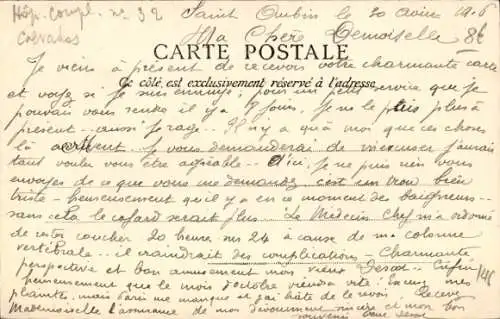 Hôp. Compl. nº 32
Calvados
Saint Aubin le 20 1916
Ma Chère Demoiselle
CARTE POSTALE
Je viens à présent de recevoir votre charmante carte
Ce côté est exclusivement réservé à l'adresse
et voyez si je pour un petit service que je
pouvais vous rendre il y a jours. Je ne le puis plus à
présent - aussi je rage. Il n'y a qu'à moi que ces choses
là arrivent. Je vous demanderai de m'excuser j'aurais
tant voulu vous être agréable - D'ici, je ne puis rien vous
envoyer de ce que vous me demandez c'est un trou bien
triste - heureusement qu'il y a en ce moment des baigneurs -
sans cela le cafard serait plus. Le Médecin Chef m'a ordonné
de rester coucher 20 heures sur 24 à cause de ma colonne
vertébrale.. il craindrait des complications - Charmante
perspective et bon amusement mon vieux Enfin
heureusement que le mois d'octobre viendra vite. Excusez mes
plaintes, mais Paris me manque et j'ai hâte de le revoir. Recevez
Mademoiselle l'assurance de mon dévouement sincère et mon bon
souvenir